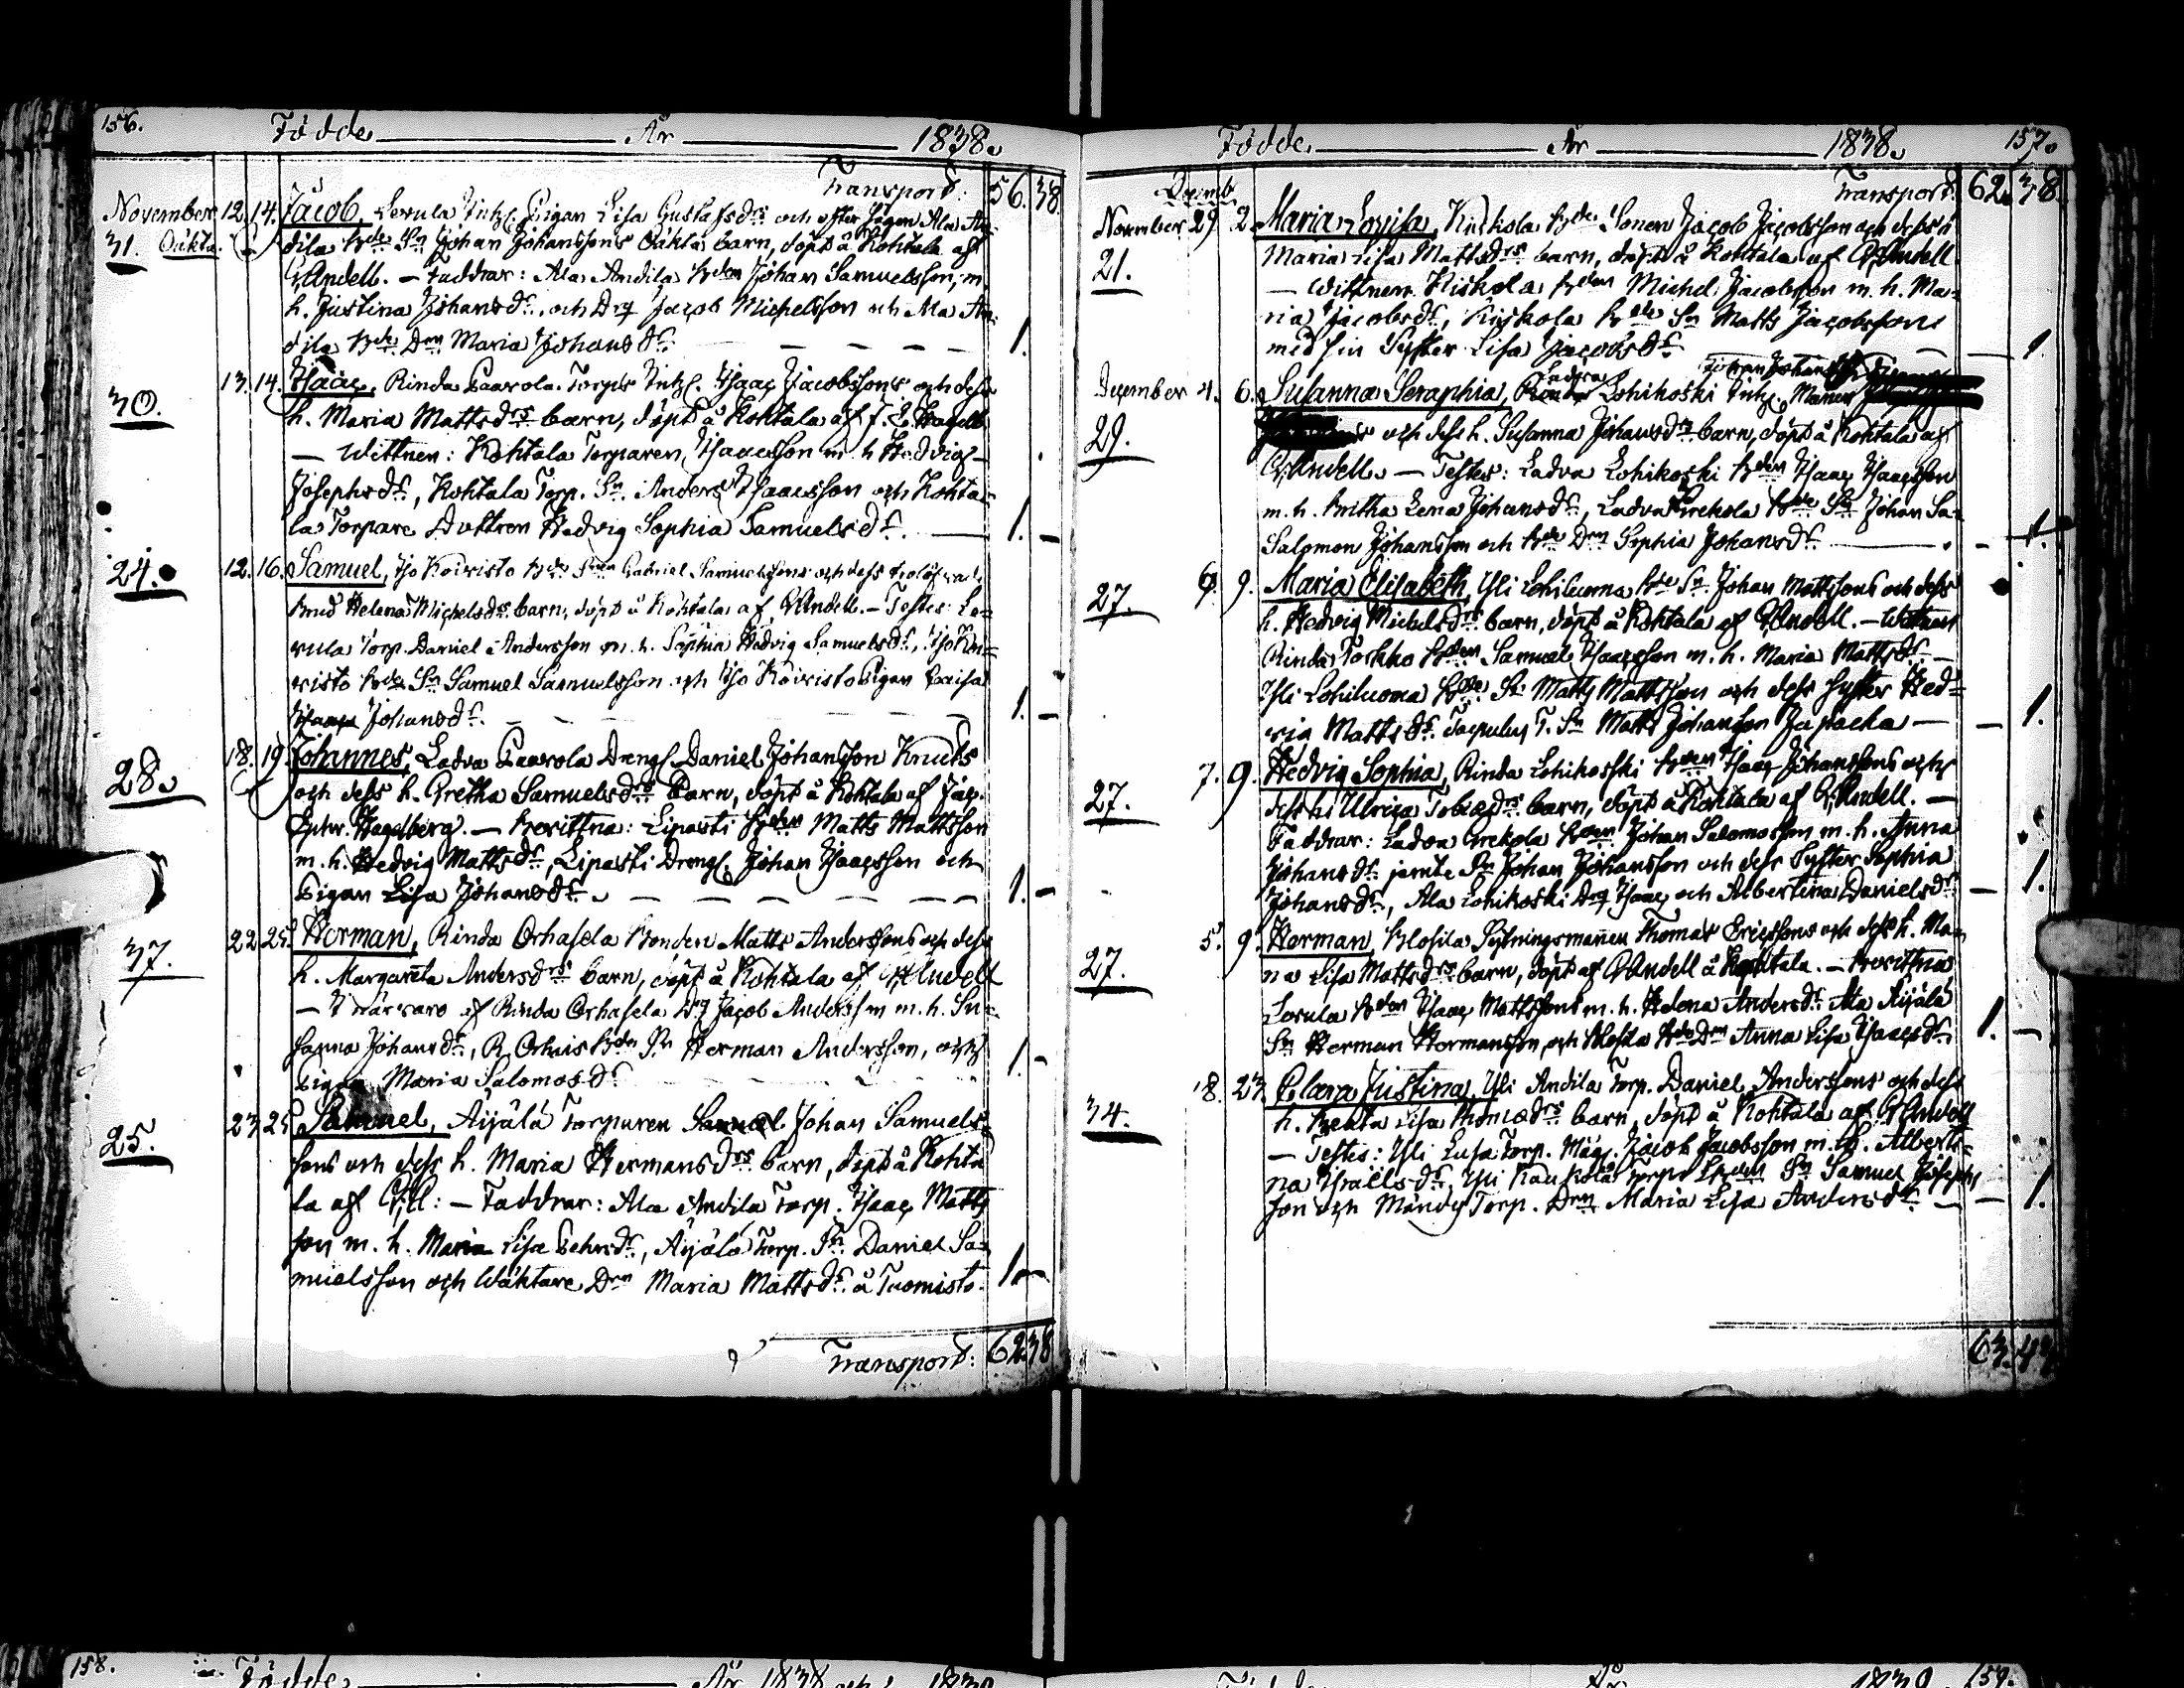 156. Födde År 1838.
Transport: 56. 38.
November 12. 14. Jacob, Lorula Pigan Lisa Gustafsdrs och efter sägen Ala An-
31. Oäkta. dila Bde Sn Johan Johanssons Oäkta barn, döpt å Kohtala af
G. Andell. — Faddrar: Ala Andila Bden Johan Samuelsson, m.
h. Justina Johansdr. och Drg Jacob Michelsson och Ala An-
dila Bde Drn Maria Johansdr. 1.
13. 14. Isaac, Rinda Paavola Torps Inhs. Isaac Jacobssons och dess
30. h. Maria Mattsdrs barn, döpt å Kohtala af J. E. Hagelb.
— Wittnen: Kohtala Torparen Isaacsson m. h. Hedvig
Josephsdr, Kohtala Torp. Sn. Anders Isaacsson och Kohta-
la Torpare Dottren Hedvig Sophia Samuelsdr. 1. —
12. 16. Samuel, Iso Koivisto Bde Sonen Gabriel Samuelssons och dess
24. Helena Michelsdrs barn, döpt å Kohtala af G. Andell. — Testes: Lo-
rula Torp. Daniel Andersson m. h. Sophia Hedvig Samuelsdr., Iso Koi-
visto Bde Sn Samuel Samuelsson och Iso Koivisto Pigan
Johansdr. 1. —
18. 19. Johannes, Ladva Paavola Drengs. Daniel Johansson Knuts
28. och dess h. Gretha Samuelsdrs Barn, döpt å Kohtala af Jac.
Ephr. Hagelberg. — Bevittna: Liparti Bden Matts Mattsson
m. h. Hedvig Mattsdr, Liparti Drengs. Johan Isaacsson och
Pigan Lisa Johansdr. 1. —
22. 25. Herman, Rinda Orhasela Bonden Matts Anderssons och dess
37. h. Margareta Andersdrs barn, döpt å Kohtala af G. Andell
— af Rinda Orhasela Drg Jacob Andersson m. h. Su-
sanna Johansdr, R. Bde Sn Herman Andersson, och
Pigan Maria Salomosdr 1. —
23. 25. Samuel, Äijälä Torparen Samuel Johan Samuels-
25. sons och dess h. Maria Hermansdrs barn, döpt å Kohta
la af G. A: — Faddrar: Ala Andila Torp. Isaac Matts
son m. h. Maria Lisa Pehrsdr, Äijälä Torp. Sn Daniel Sa-
muelsson och Wäktare Drn Maria Mattsdr. å Tuomisto. 1. —
Transport: 62. 38
Födde År 1838. 157.
Decemb. Transport: 62. 38.
November 29. 2. Maria Lovisa, Kiskola Bde Sonen Jacob Jacobsson och dess h
21. Maria Lisa Mattsdrs barn, döpt å Kohtala af G. Andell
— Wittnen Kiskola Bden Michel Jacobsson m. h. Ma-
ria Jacobsdr, Kiskola Bde Sn Matts Jacobsson
med sin Syster Lisa Jacobsdr — 1.
Ladva Johan Johanss
December 4. 6. Susanna Seraphia, Lohikoski Inhs.
29. och dess h. Susanna Johansdrs barn, döpt å Kohtala af
G. Andell. — Testes: Ladva Lohikoski Bden Isaac Isaacsson
m. h. Britha Lena Johansdr, Ladva Grekola Bde Sn Johan Sa-
Salomon Johansson och Bde Drn Sophia Johansdr — 1.
6. 9. Maria Elisabeth, Yli Lohiluoma Bde Sn. Johan Mattssons och dess
27. h. Hedvig Michelsdrs barn, döpt å Kohtala af G. Andell. — Wittnen
Rinda Torkko Bden Samuel Isaacsson m. h. Maria Mattsdr —
Yli Lohiluoma Bde Sn Matts Mattsson och dess syster Hed-
vig Mattsdr. T. Sn Matts Johansson — — 1.
7. 9. Hedvig Sophia, Rinda Lohikoski Bden Isaac Johanssons och
27. dess h. Ulrica Tobiædrs barn, döpt å Kohtala af G. Andell. —
Faddrar: Ladva Grekola Bden Johan Salomosson m. h. Anna
Johansdr jemte Sn Johan Johansson och dess Syster Sophia
Johansdr, Ala Lohikoski Drg Isaac och Albertina Danielsdr — 1.
5. 9. Herman, Klosila Sytningsmannen Thomas Ericssons och dess h. Ma-
27. na Lisa Mattsdrs barn, döpt af G. Andell å Kohtala. — Bevittna
Lorula Bden Isaac Mattsson m. h. Helena Andersdr. Ala Äijälä
Sn Herman Hermansson, och Bde Drn Anna Lisa Isaacsdr. 1. —
18. 23. Clara Justina, Yli Andila Torp. Daniel Anderssons och dess
34. h. Beata Lisa Thomædrs barn, döpt å Kohtala af G. Andell
— Testes: Yli Torp. Måg. Jacob Jacobsson m. h. Alberti-
na Israelsdr. Yli Kaukola Torps Bden Sn Samuel Josephs
son och Torp. Drn Maria Lisa Andersdr — 1.
63. 43
158. Födde År 1838 och 1839
Födde År 1839. 159.